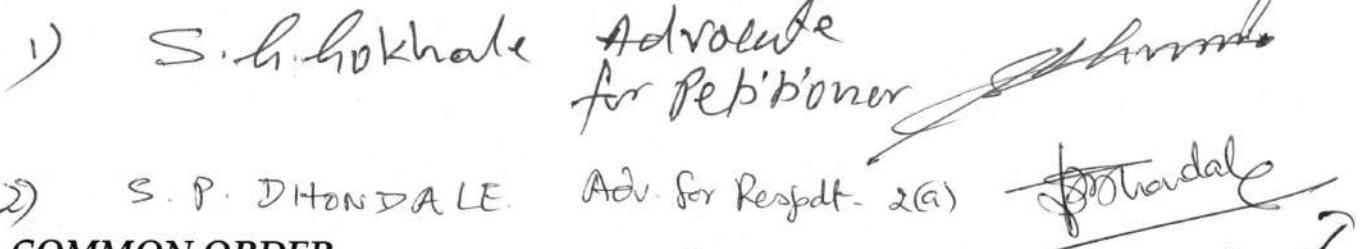 1) S. G. Gokhale Advocate
for Petitioner
2) S. P. DHONDALE. Adv. for Respdt. 2(a) Dhondale
COMMON ORDER